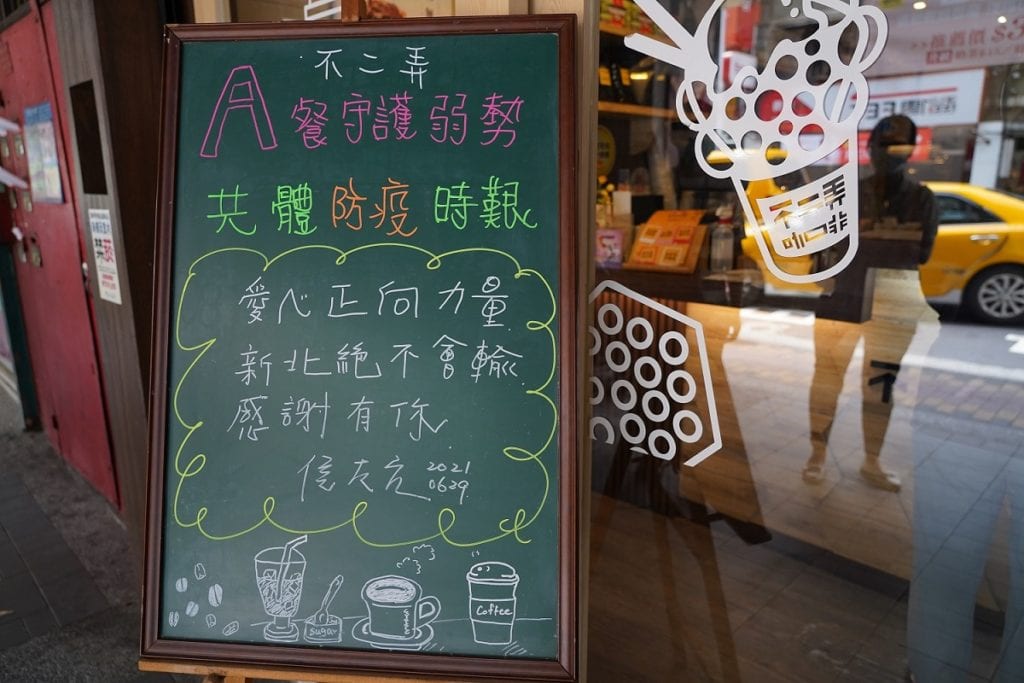 不二弄
A餐守護弱勢
共體防疫時艱
愛心正向力量
新北絕不會輸
感謝有你
侯友宜 2021
0629
sugar
Coffee
不二弄
咖啡